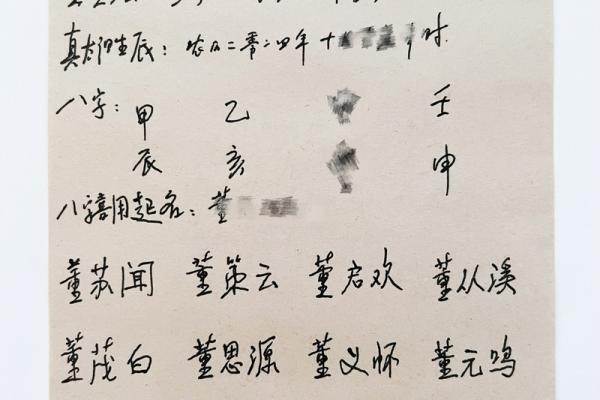 真太阳生辰：农历二零二四年十 时
八字：甲 乙 壬
辰 亥 申
八字喜用起名：董
董苏闻 董策云 董启欢 董从溪
董茂白 董思源 董义怀 董元鸣